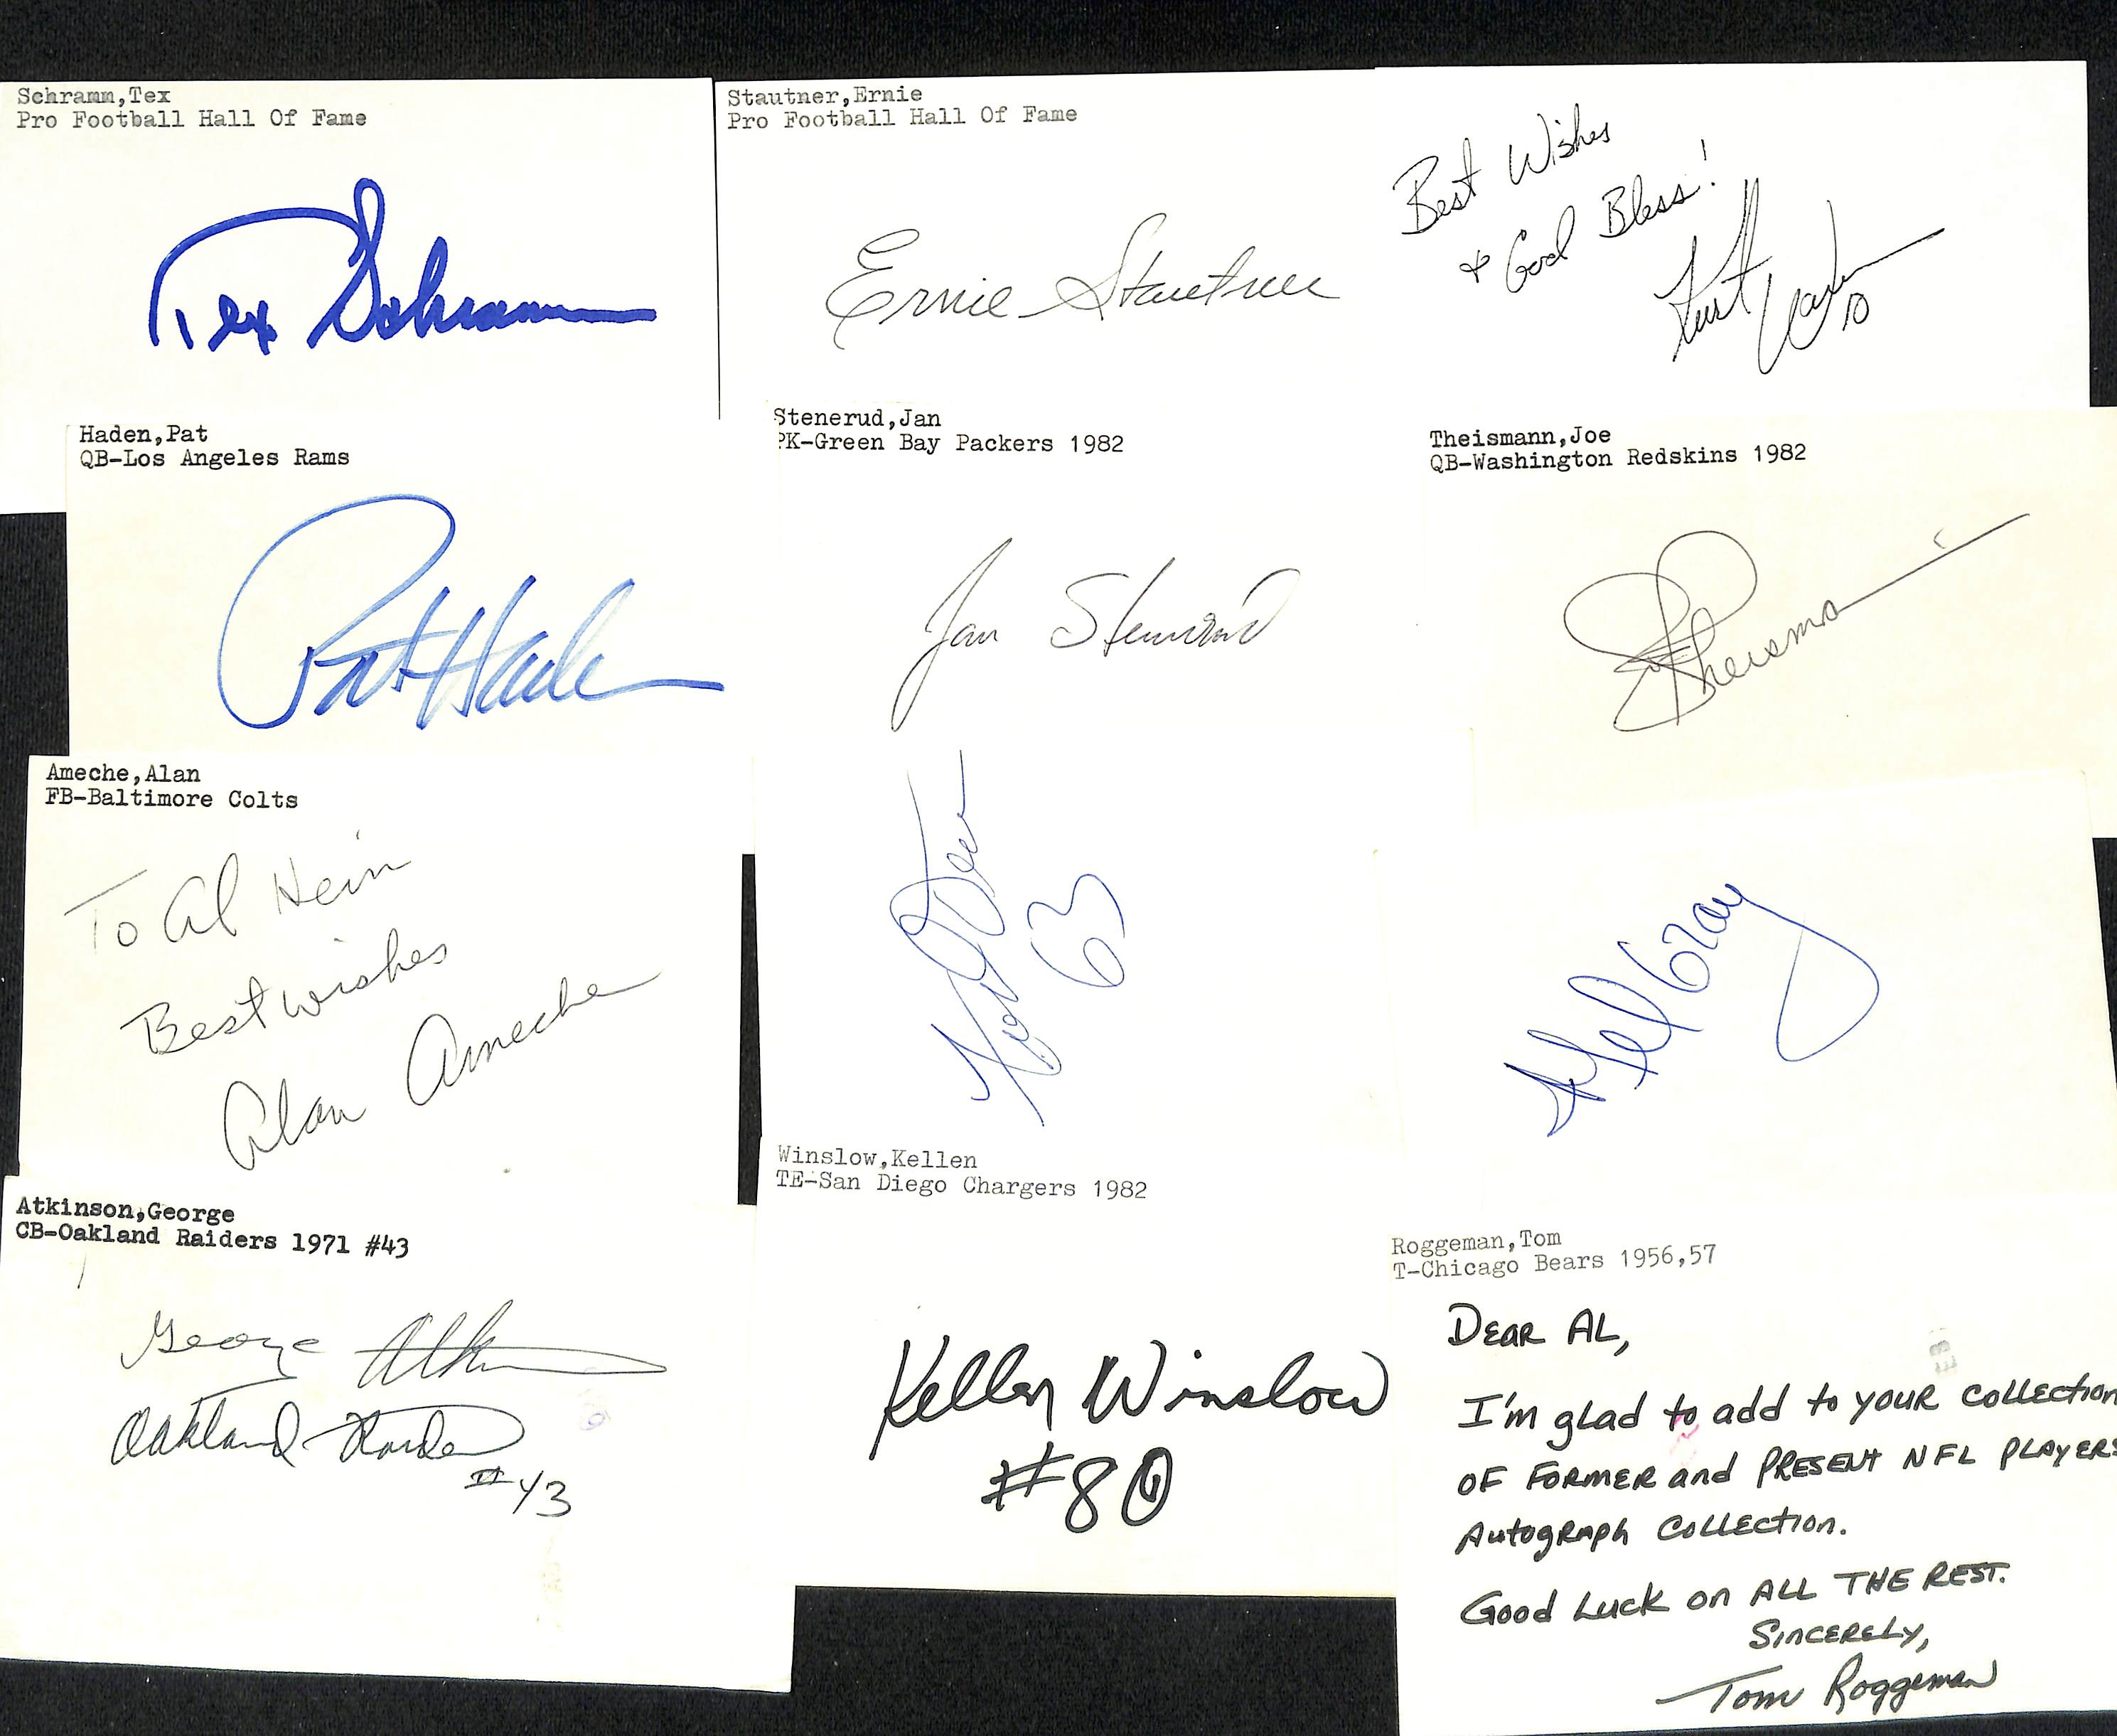 Schramm,Tex
Pro Football Hall Of Fame
Tex Schramm
Stautner,Ernie
Pro Football Hall Of Fame
Ernie Stautner
Best Wishes
& God Bless!
Kurt
10
Haden,Pat
QB-Los Angeles Rams
Pat Haden
Stenerud,Jan
PK-Green Bay Packers 1982
Jan Stenerud
Theismann,Joe
QB-Washington Redskins 1982
J Theismann
Ameche,Alan
FB-Baltimore Colts
To Al Hein
Best wishes
Alan Ameche
63
Mel Gray
Atkinson,George
CB-Oakland Raiders 1971 #43
George Atkinson
Oakland Raiders
#43
Winslow,Kellen
TE-San Diego Chargers 1982
Kellen Winslow
#80
Roggeman,Tom
T-Chicago Bears 1956,57
Dear AL,
I'm glad to add to your collection
OF FORMER and PRESENT NFL PLAYERS
Autograph Collection.
Good Luck on ALL THE REST.
Sincerely,
Tom Roggeman